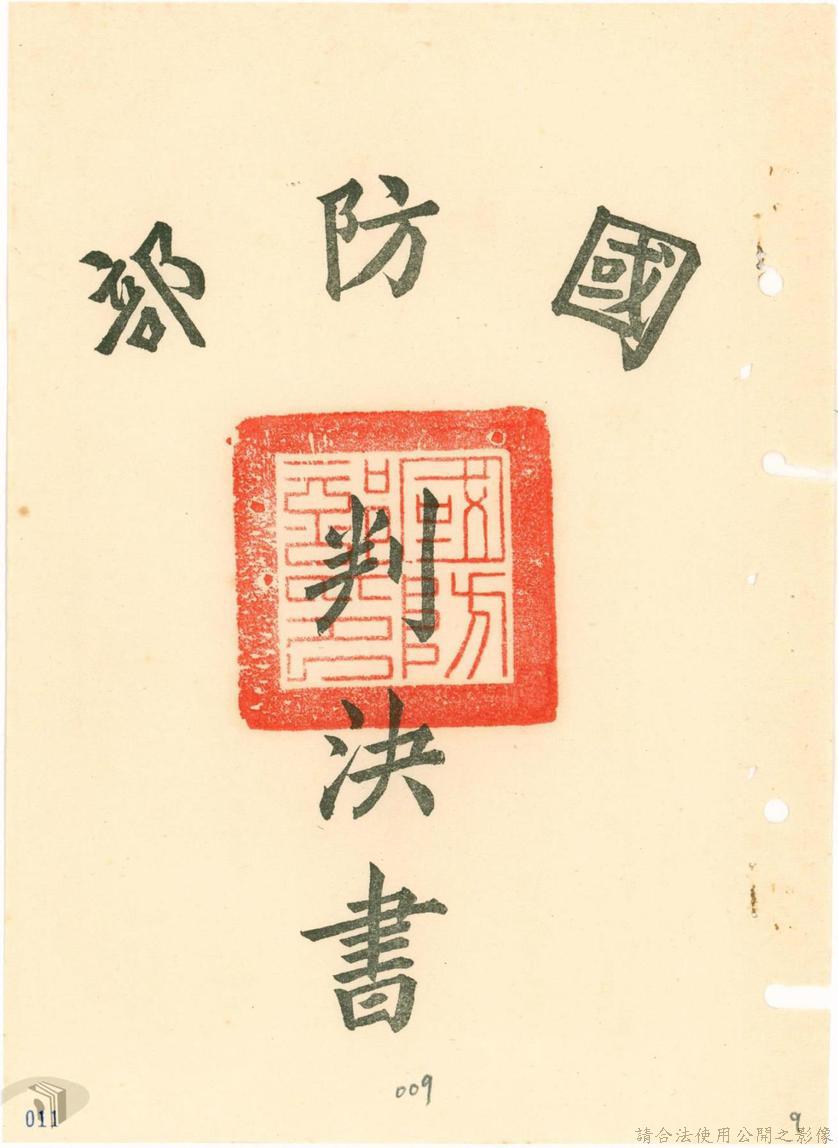 國防部
國防部印
判決書
009
011
9
請合法使用公開之影像